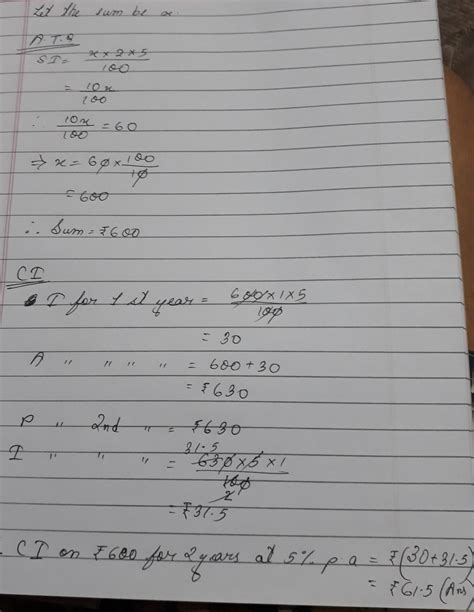 Let the sum be x.
A.T.Q
SI = x × 2 × 5 / 100
= 10x / 100
∴ 10x / 100 = 60
⇒ x = 60 × 100 / 10
= 600
∴ Sum = ₹600
CI
I for 1st year = 600 × 1 × 5 / 100
= 30
A " " " " = 600 + 30
= ₹630
P " 2nd " = ₹630
31.5
I " " " = 630 × 5 × 1 / 100
2
= ₹31.5
CI on ₹600 for 2 years at 5% p a = ₹(30 + 31.5)
= ₹61.5 (Ans)